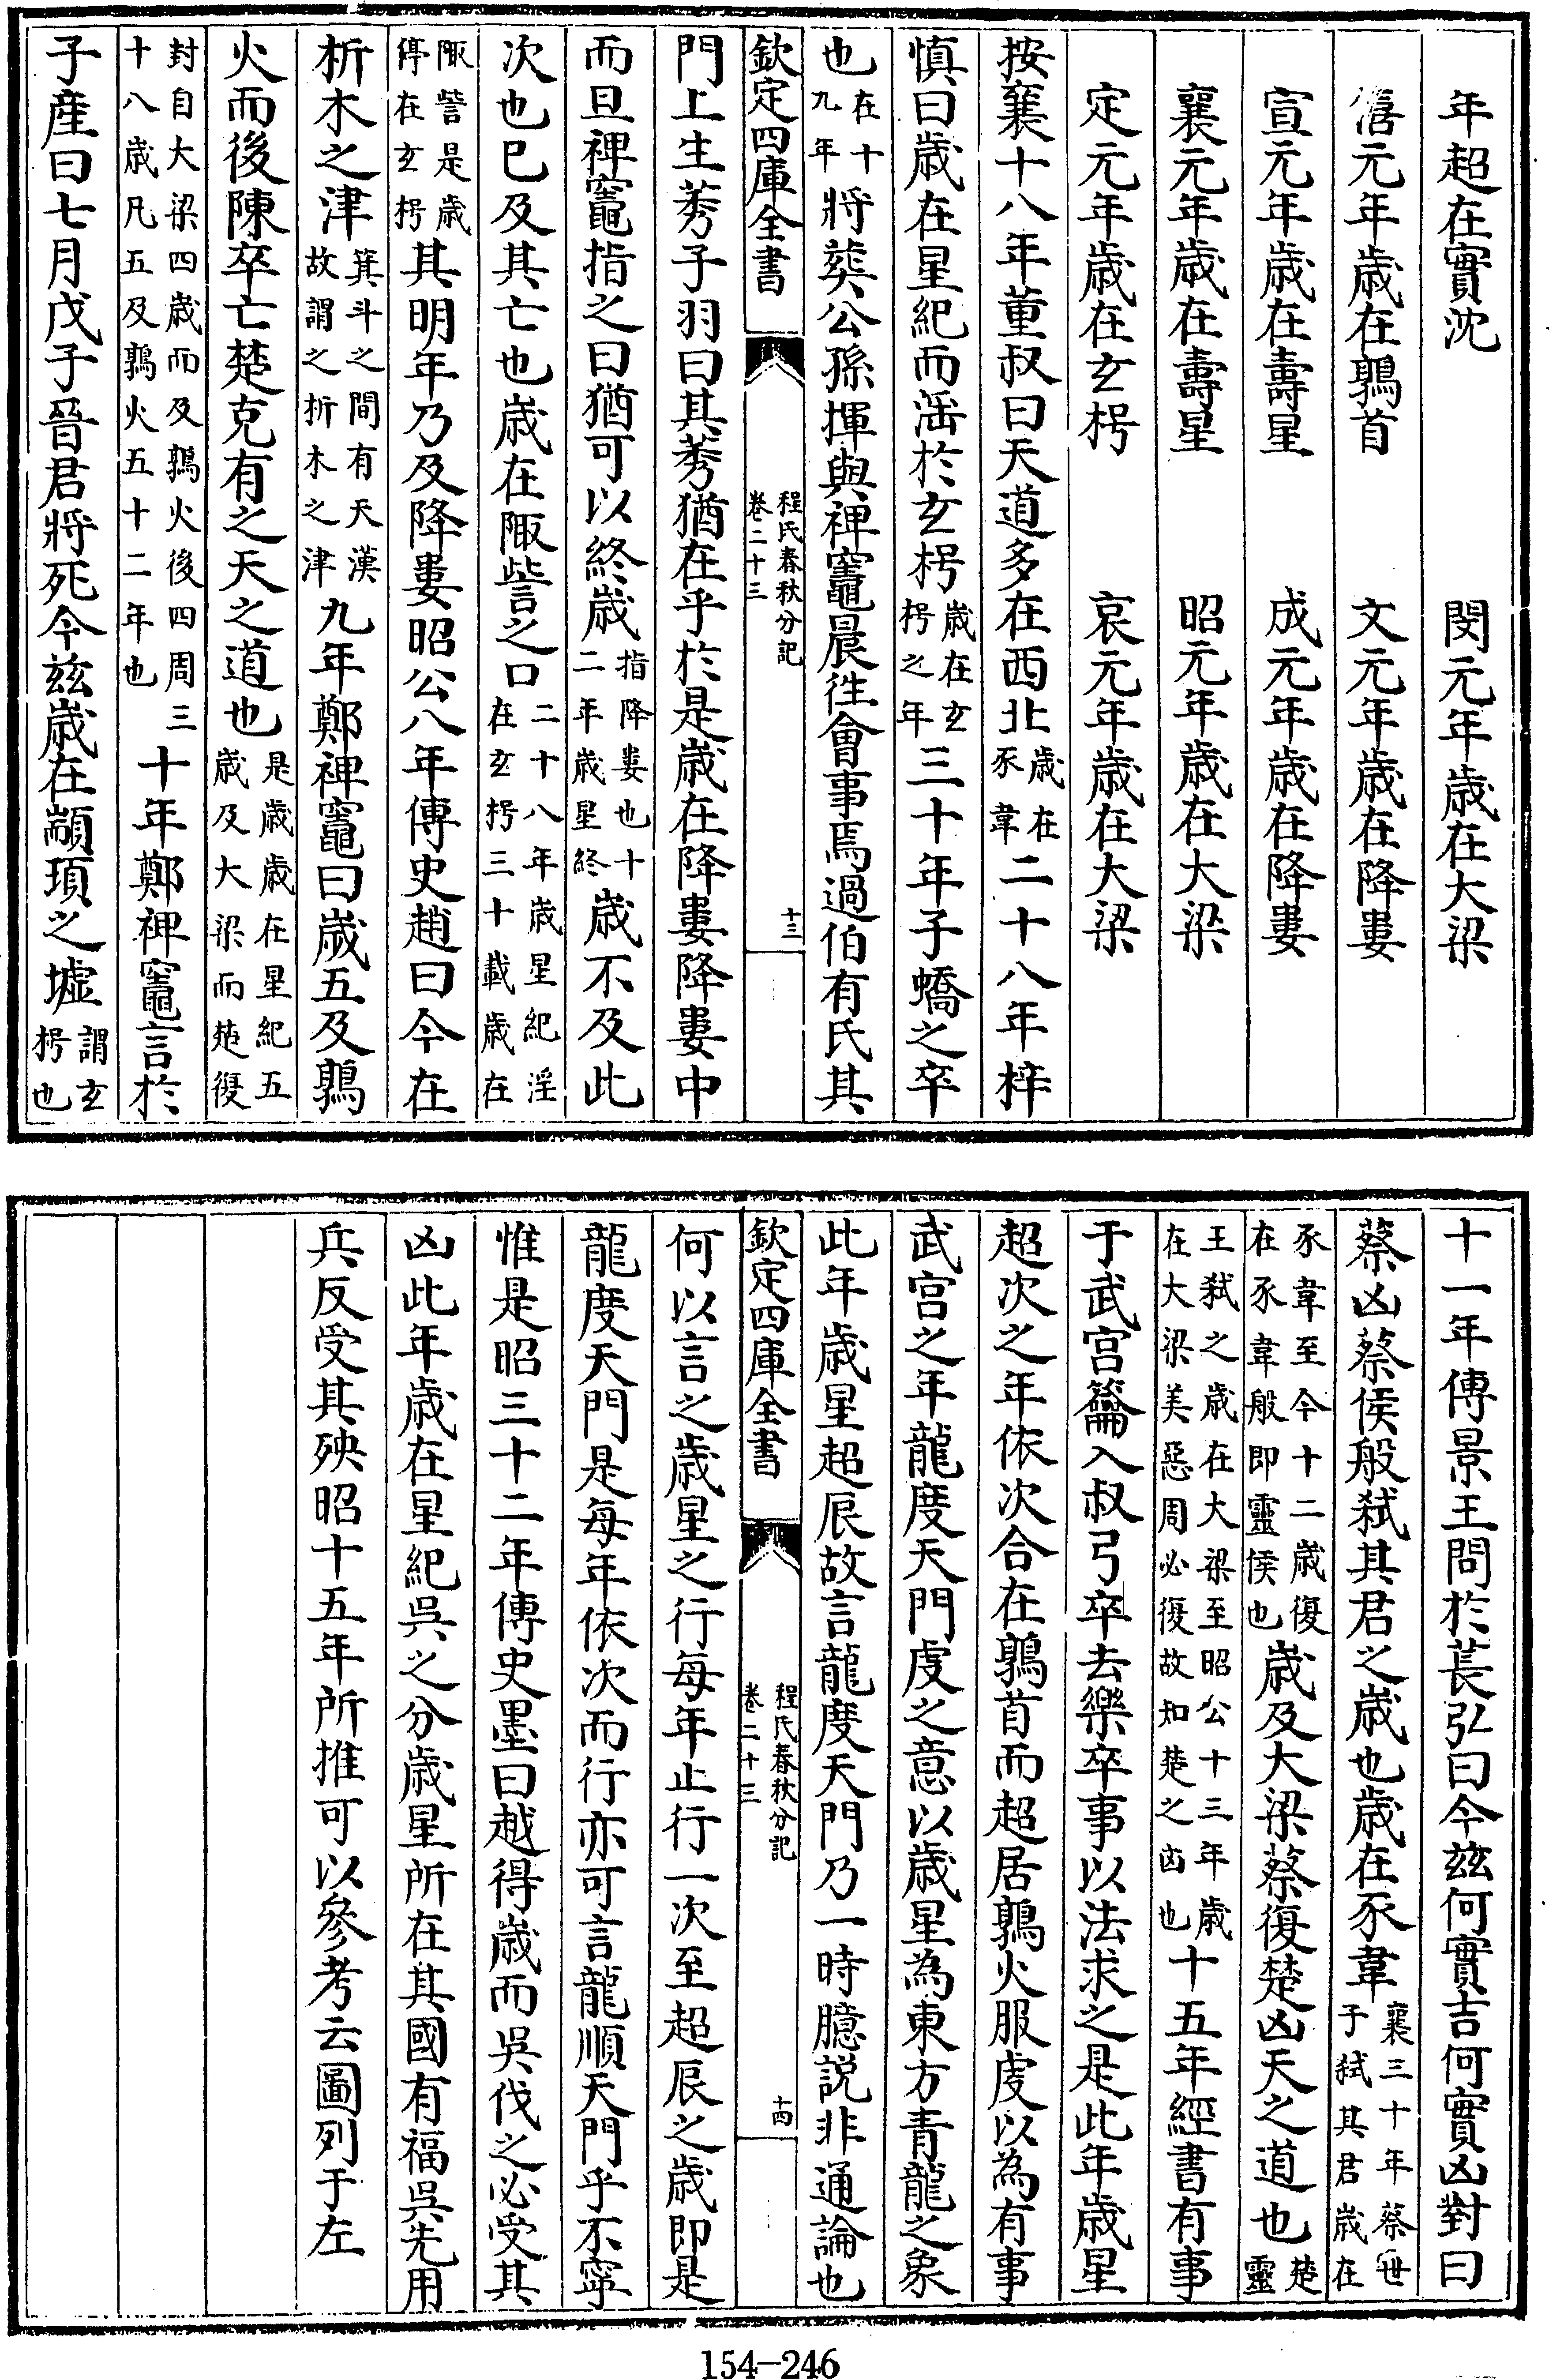 年超在實沈　　　　　閔元年歲在大梁
僖元年歲在鶉首　　　文元年歲在降婁
宣元年歲在壽星　　　成元年歲在降婁
襄元年歲在壽星　　　昭元年歲在大梁
定元年歲在玄枵　　　哀元年歲在大梁
按襄十八年董叔曰天道多在西北歲在豕韋二十八年梓
慎曰歲在星紀而淫於玄枵歲在玄枵之年三十年子蟜之卒
也在十九年將葬公孫揮與裨竈晨徃會事焉過伯有氏其
欽定四庫全書　程氏春秋分記卷二十三　十三
門上生莠子羽曰其莠猶在乎於是歲在降婁降婁中
而旦裨竈指之曰猶可以終歲指降婁也十二年歲星終歲不及此
次也已及其亡也歲在陬訾之口二十八年歲星紀淫在玄枵三十載歲在
陬訾是歲停在玄枵其明年乃及降婁昭公八年傳史趙曰今在
析木之津箕斗之間有天漢故謂之析木之津九年鄭裨竈曰歲五及鶉
火而後陳卒亡楚克有之天之道也是歲歲在星紀五歲及大梁而楚復
封自大梁四歲而及鶉火後四周三十八歲凡五及鶉火五十二年也十年鄭裨竈言於
子產曰七月戊子晉君將死今玆歲在顓頊之墟謂玄枵也
十一年傳景王問於萇弘曰今玆何實吉何實凶對曰
蔡凶蔡侯般弑其君之歲也歲在豕韋襄三十年蔡世子弑其君歲在
豕韋至今十二歲復在豕韋般即靈侯也歲及大梁蔡復楚凶天之道也楚靈
王弑之歲在大梁至昭公十三年歲在大梁美惡周必復故知楚之凶也十五年經書有事
于武宮籥入叔弓卒去樂卒事以法求之是此年歲星
超次之年依次合在鶉首而超居鶉火服虔以為有事
武宮之年龍度天門虔之意以歲星為東方青龍之象
此年歲星超辰故言龍度天門乃一時臆說非通論也
欽定四庫全書　程氏春秋分記卷二十三　十四
何以言之歲星之行每年止行一次至超辰之歲即是
龍度天門是每年依次而行亦可言龍順天門乎不寧
惟是昭三十二年傳史墨曰越得歲而吳伐之必受其
凶此年歲在星紀吳之分歲星所在其國有福吳先用
兵反受其殃昭十五年所推可以參考云圖列于左
154-246